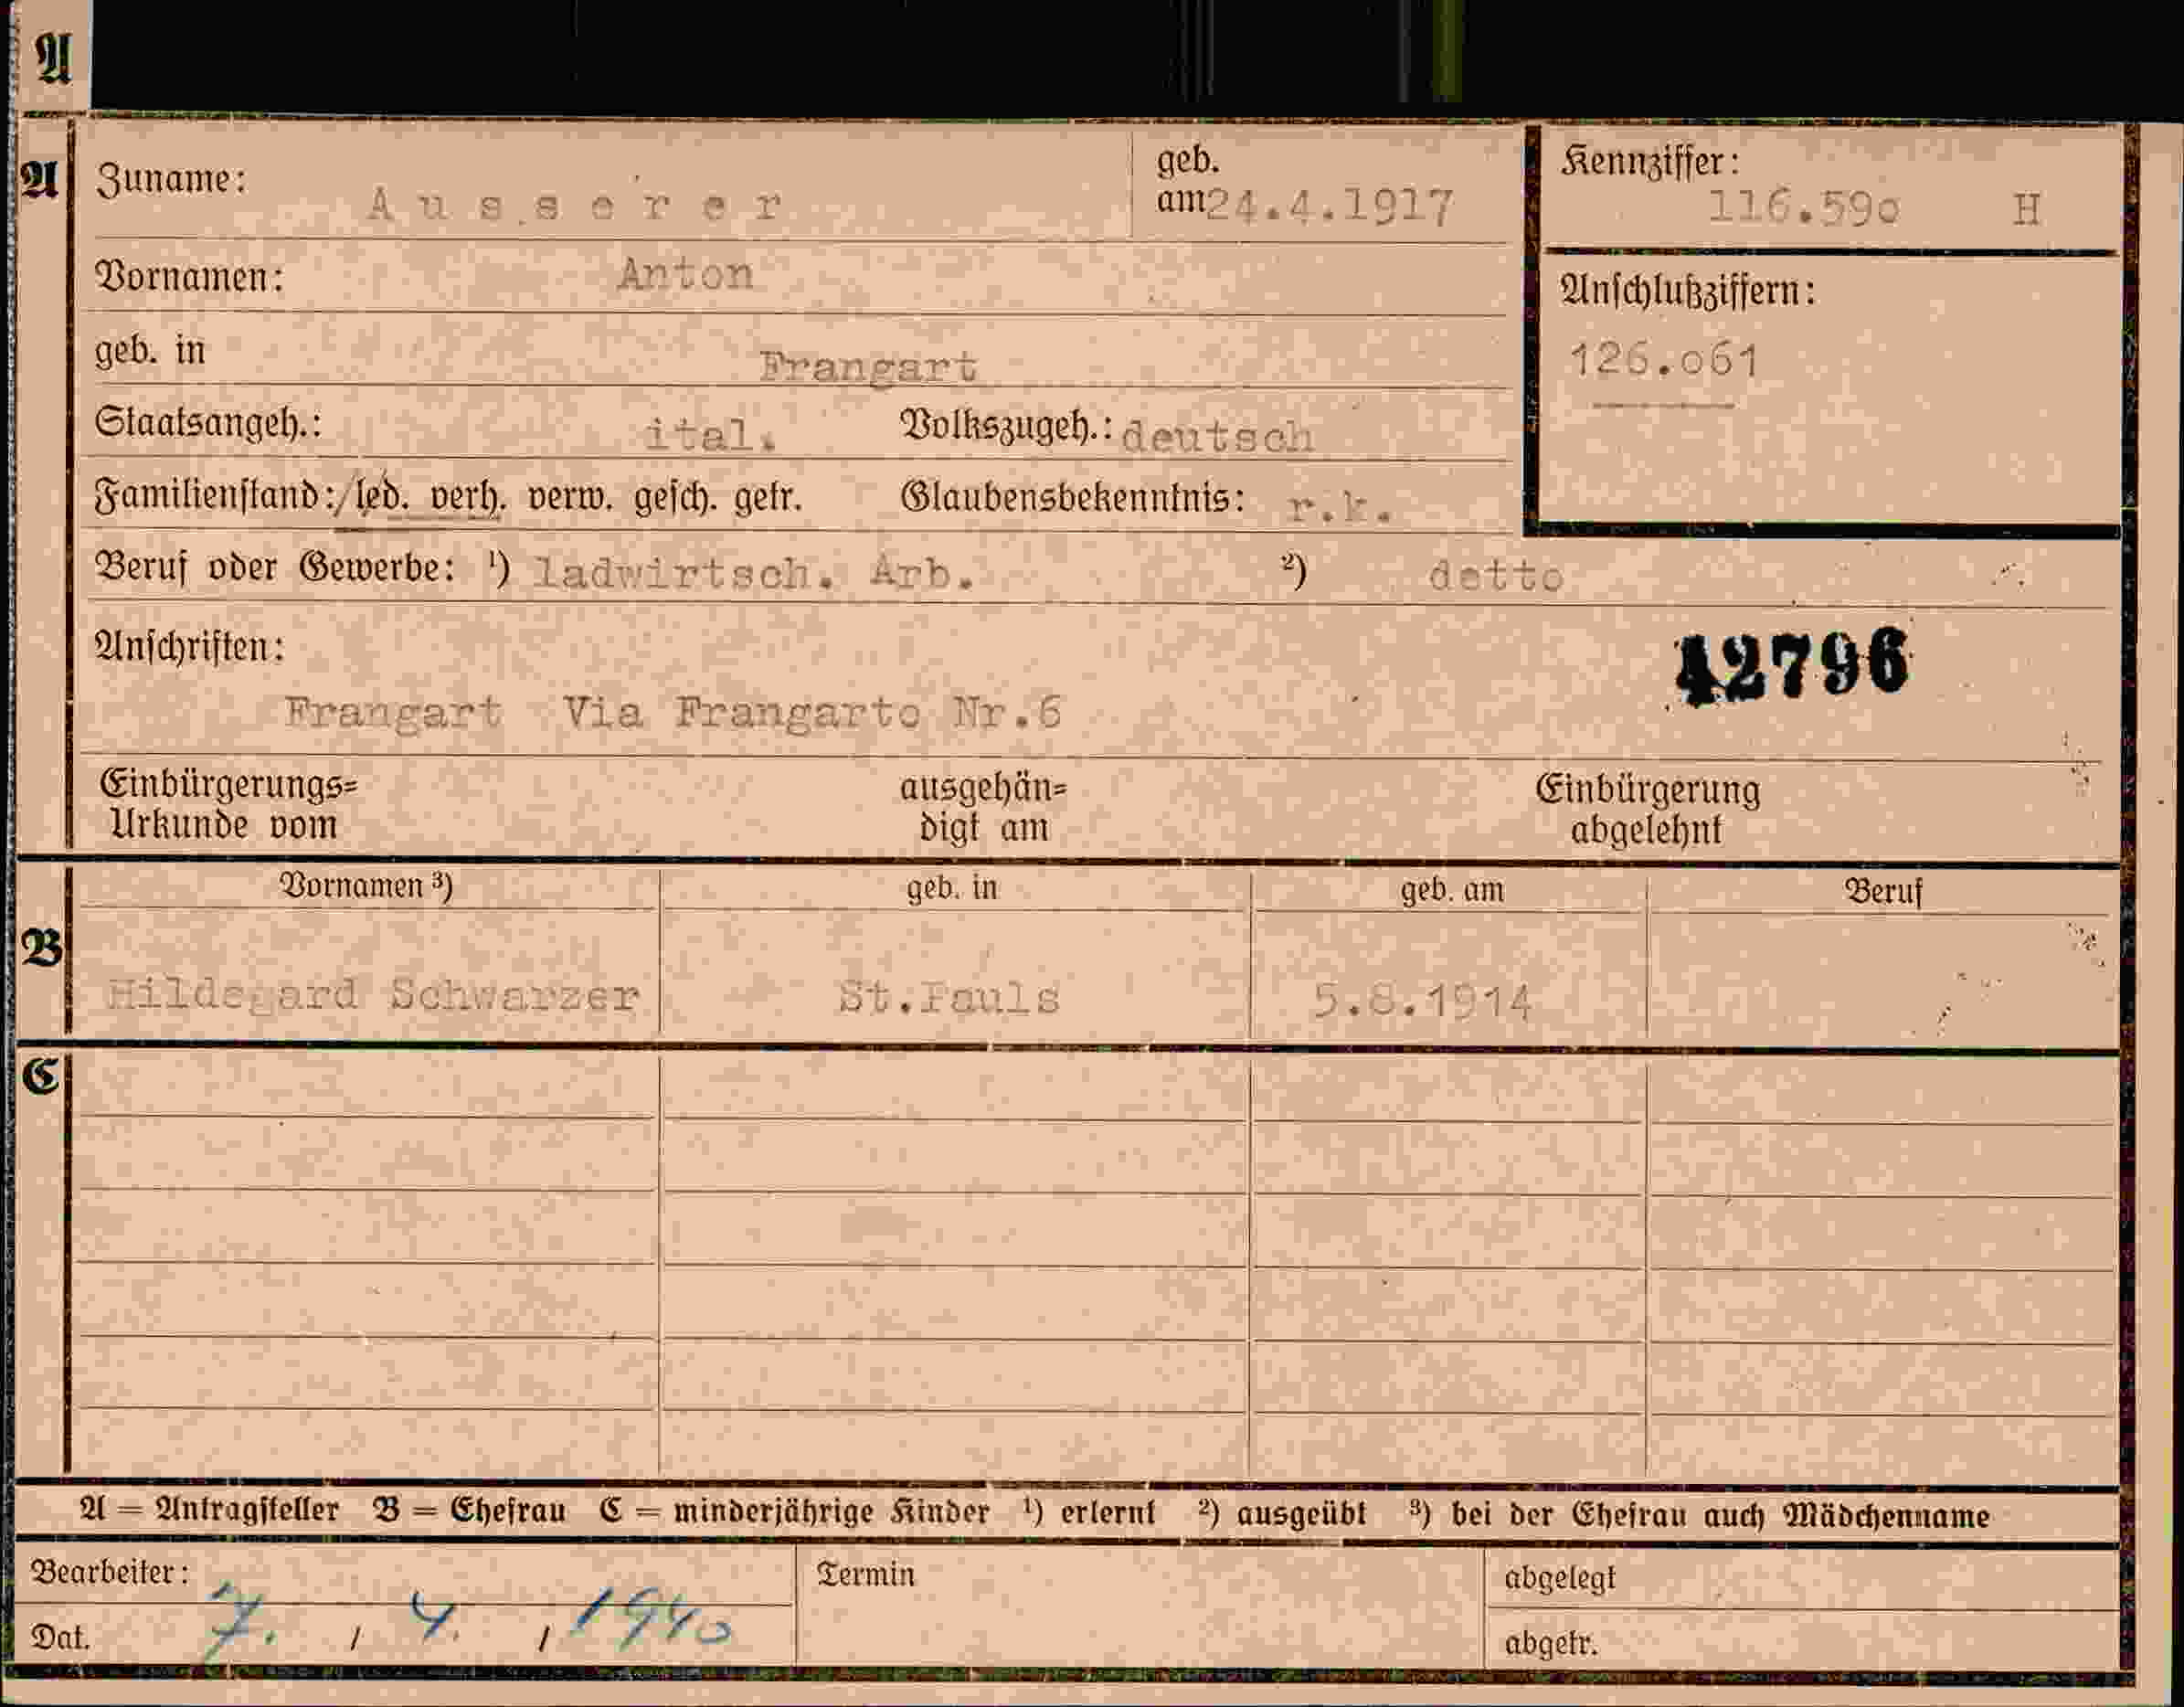 A
A
Zuname: Ausserer
geb. am 24.4.1917
Kennziffer: 116.59o H
Vornamen: Anton
Anschlußziffern:
126.o61
geb. in Frangart
Staatsangeh.: ital. Volkszugeh.: deutsch
Familienstand:/led. verh. verw. gesch. getr. Glaubensbekenntnis: r.k.
Beruf oder Gewerbe: ¹) ladwirtsch. Arb. ²) detto
Anschriften:
42796
Frangart Via Frangarto Nr.6
Einbürgerungs=
Urkunde vom
ausgehän=
digt am
Einbürgerung
abgelehnt
B
Vornamen ³) geb. in geb. am Beruf
Hildegard Schwarzer St.Pauls 5.8.1914
C
A = Antragsteller B = Ehefrau C = minderjährige Kinder ¹) erlernt ²) ausgeübt ³) bei der Ehefrau auch Mädchenname
Bearbeiter:
Dat. 7. / 4. / 1940
Termin
abgelegt
abgetr.